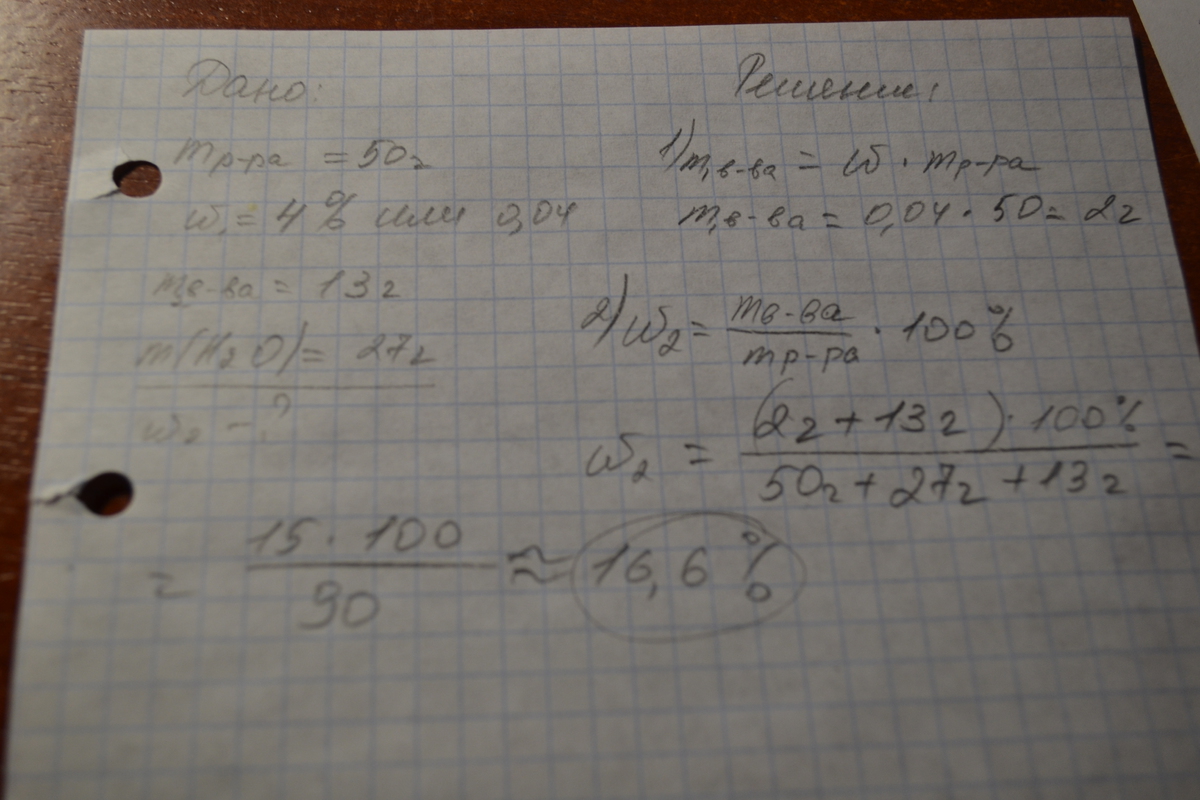 Дано:
mр-ра = 50г
ω₁ = 4% или 0,04
m₂в-ва = 13г
m(H₂O) = 27г
ω₂ - ?
Решение:
1) m₁в-ва = ω · mр-ра
m₁в-ва = 0,04 · 50 = 2г
2) ω₂ = mв-ва / mр-ра · 100%
ω₂ = (2г + 13г) · 100% / 50г + 27г + 13г =
= 15 · 100 / 90 ≈ 16,6%